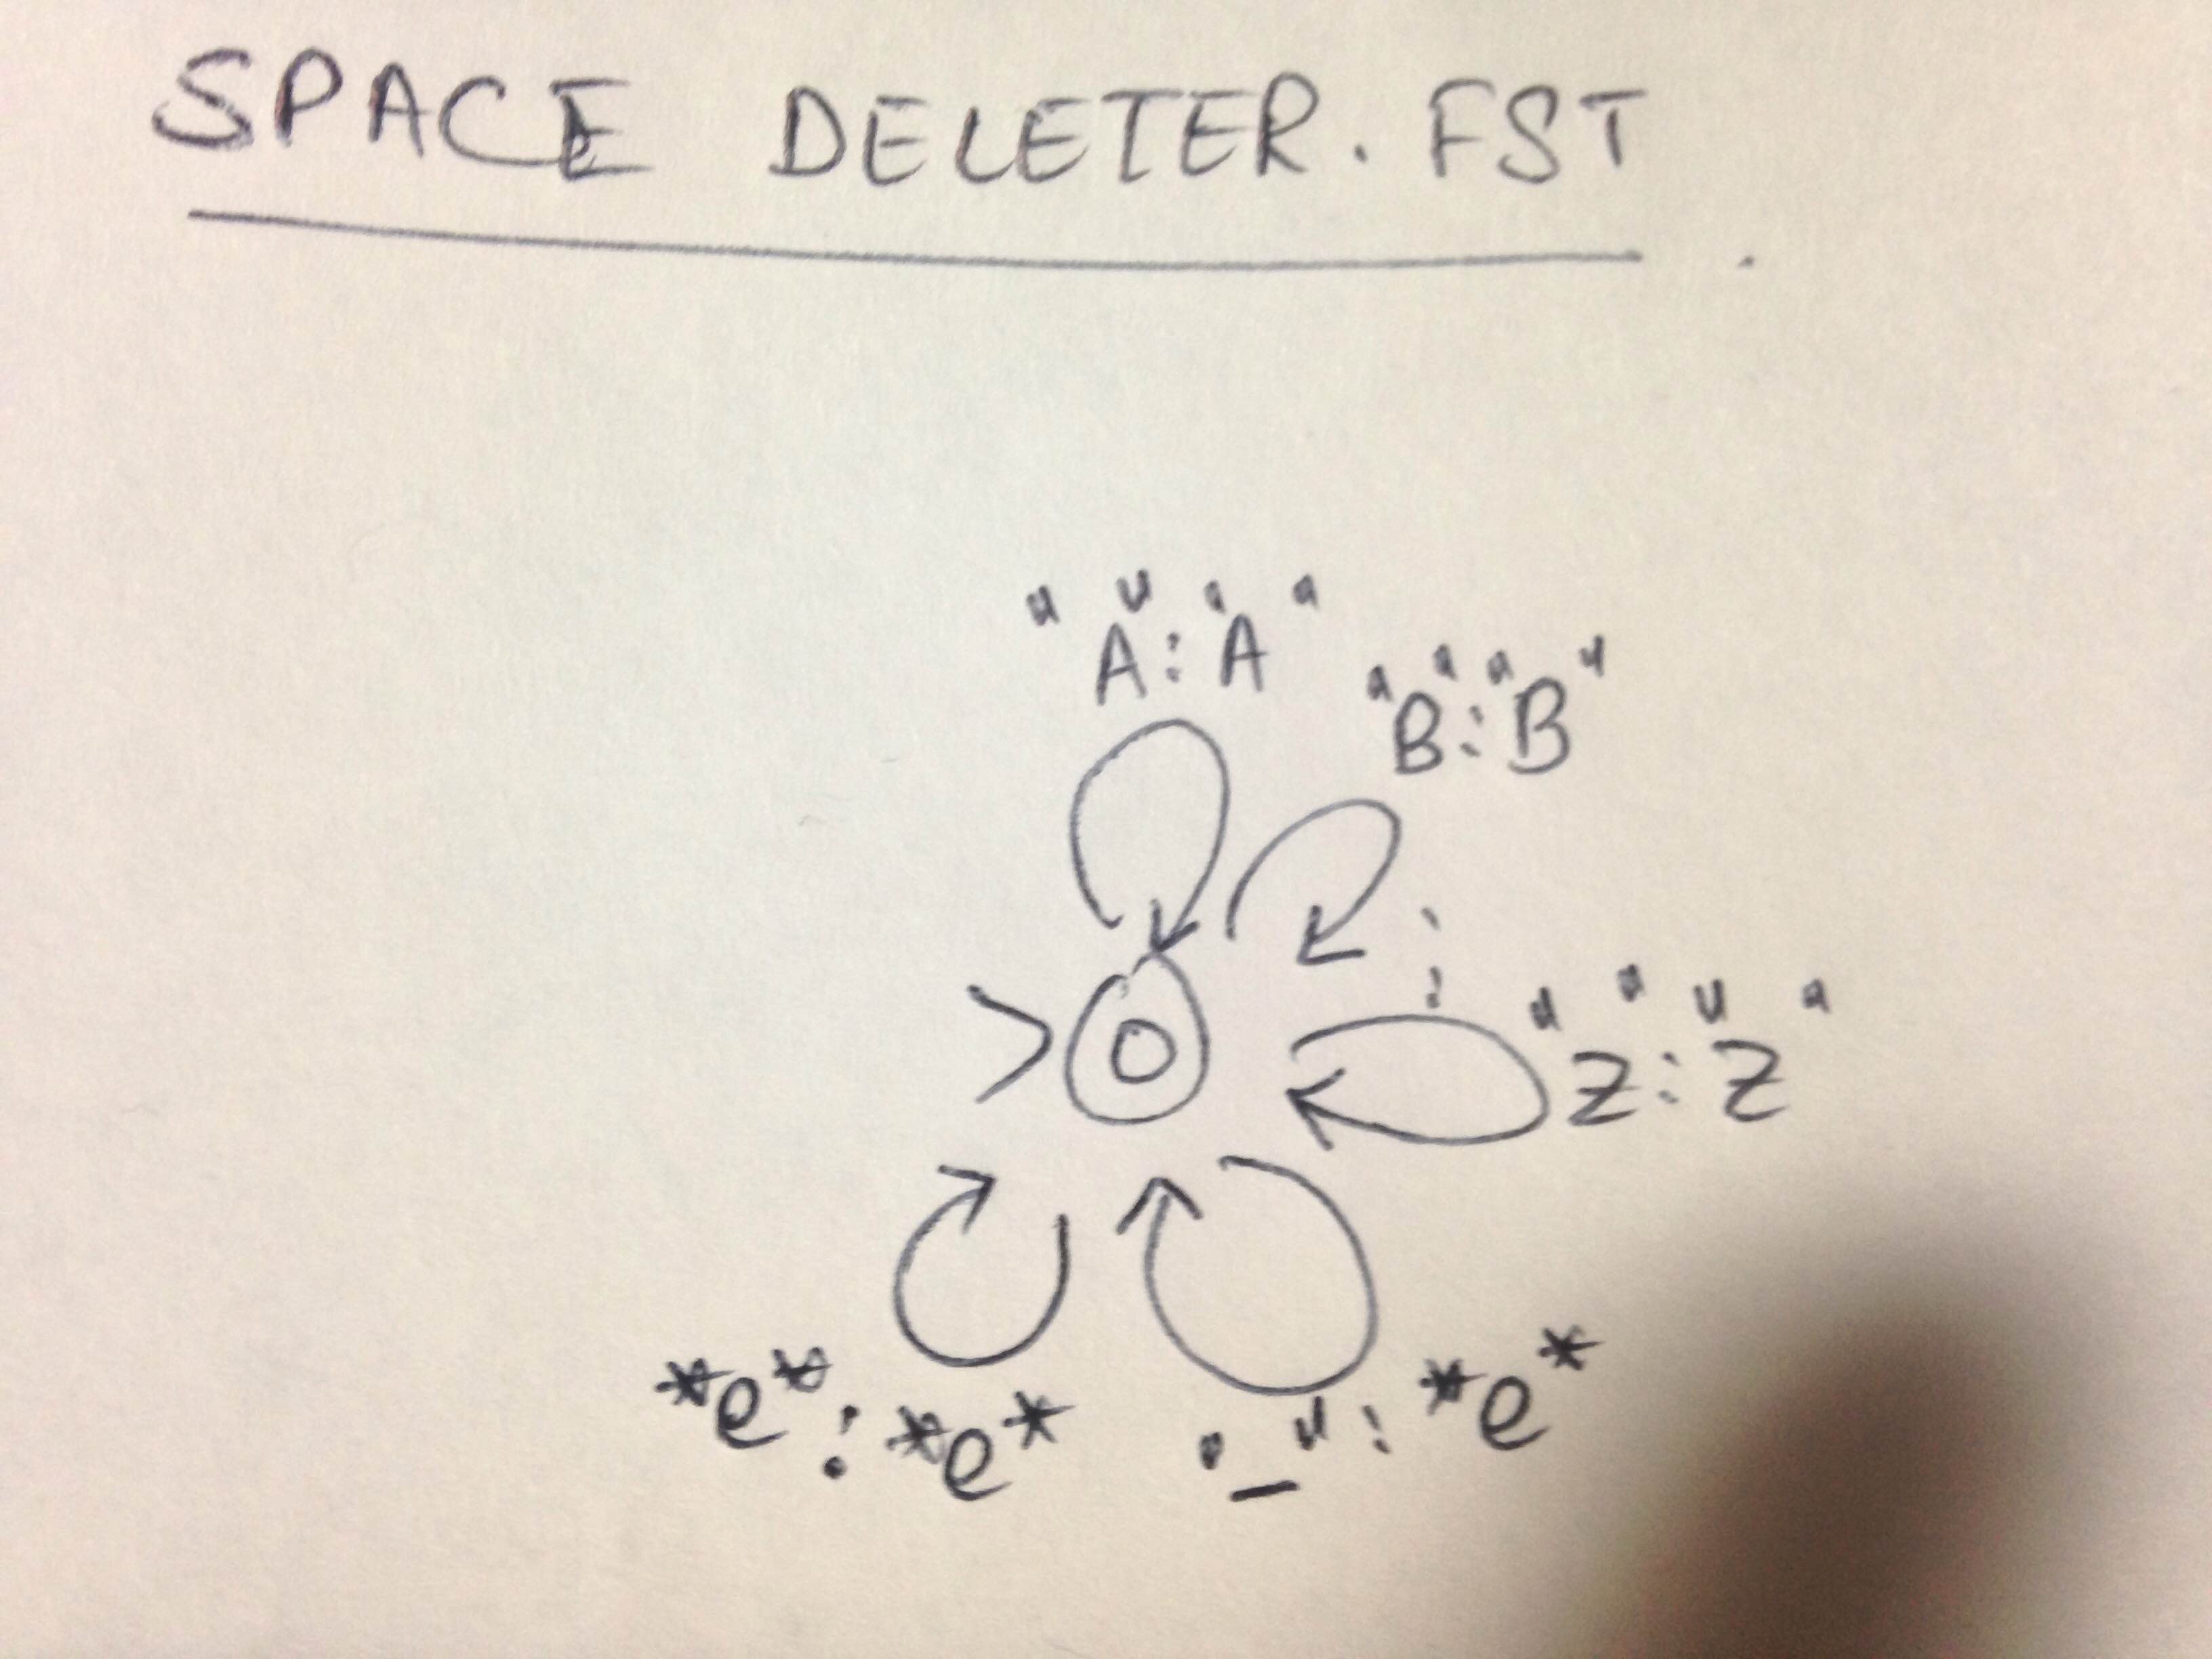 SPACE DELETER.FST
"A":"A"
"B":"B"
"Z":"Z"
*e*:*e*
"_":*e*